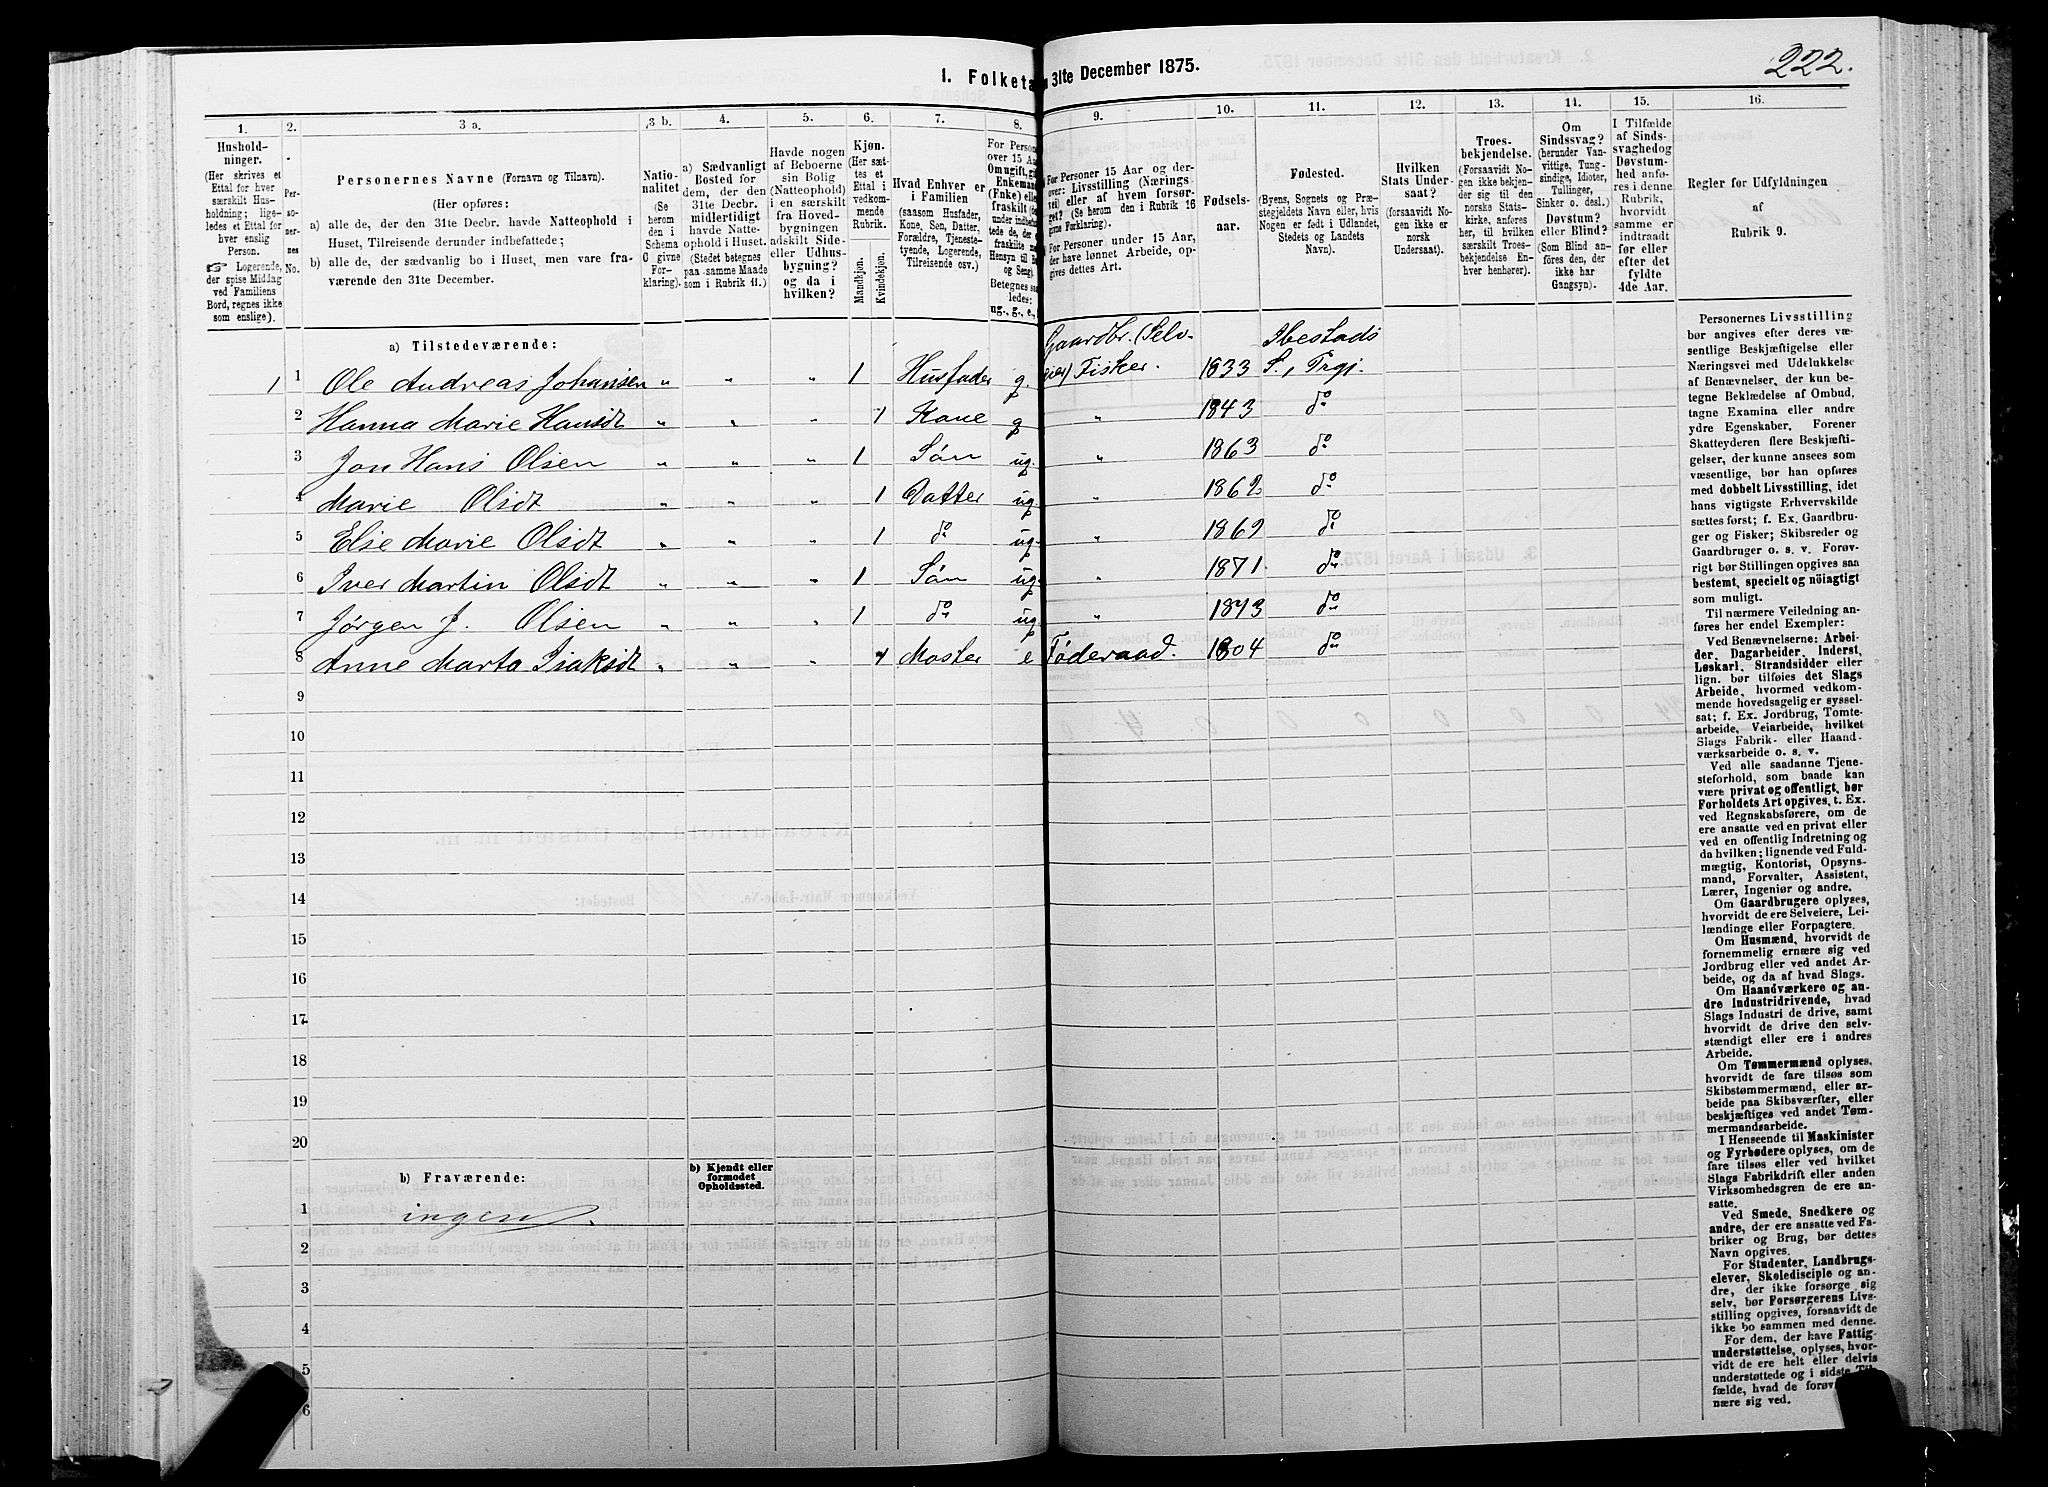 1. Folketa
n 31te December 1875.
222.
1.
2.
3 a.
3 b.
4.
5.
6.
7.
8.
9.
10.
11.
12.
13.
14.
15.
16.
Hushold-
ninger.
(Her skrives et
Ettal for hver
særskilt Hus-
holdning; lige-
ledes et Ettal for
hver enslig
Person.
☞ Logerende,
der spise Middag
ved Familiens
Bord, regnes ikke
som enslige).
Per-
so-
ner-
nes
No.
Personernes Navne (Fornavn og Tilnavn).
(Her opføres:
a) alle de, der den 31te Decbr. havde Natteophold i
Huset, Tilreisende derunder indbefattede;
b) alle de, der sædvanlig bo i Huset, men vare fra-
værende den 31te December.
Natio-
nalitet
(Se
herom
den i
Schema
O givne
For-
klaring).
a) Sædvanligt
Bosted for
dem, der den
31te Decbr.
midlertidigt
havde Natte-
ophold i Huset.
(Stedet betegnes
paa samme Maade
som i Rubrik 11.)
Havde nogen
af Beboerne
sin Bolig
(Natteophold)
i en særskilt
fra Hoved-
bygningen
adskilt Side-
eller Udhus-
bygning?
og da i
hvilken?
Kjøn.
(Her sæt-
tes et
Ettal i
vedkom-
mende
Rubrik.
Mandkjøn.
Kvindekjøn.
Hvad Enhver er
i Familien
(saasom Husfader,
Kone, Søn, Datter,
Forældre, Tjeneste-
tyende, Logerende,
Tilreisende osv.)
For Person
over 15 Aa
Om ugift, gi
Enkeman
(Enke) elle
fraskilt (
under indbe
tede de, der
fraskilte
Hensyn til B
og Seng).
Betegnes sa
ledes:
ug., g., e.,
For Personer 15 Aar og der-
over: Livsstilling (Nærings-
vei) eller af hvem forsør-
get? (Se herom den i Rubrik 16
givne Forklaring).
For Personer under 15 Aar,
der have lønnet Arbeide, op-
gives dettes Art.
Fødsels-
aar.
Fødested.
(Byens, Sognets og Præ-
stegjeldets Navn eller, hvis
Nogen er født i Udlandet,
Stedets og Landets
Navn).
Hvilken
Stats Under-
saat?
(forsaavidt No-
gen ikke er
norsk
Undersaat).
Troes-
bekjendelse.
(Forsaavidt No-
gen ikke bekjen-
der sig til den
norske Stats-
kirke, anføres
her, til hvilken
særskilt Troes-
bekjendelse En-
hver henhører).
Om
Sindssvag?
(herunder Van-
vittige, Tung-
sindige, Idioter,
Tullinger,
Sinker o. desl.)
Døvstum?
eller Blind?
(Som Blind an-
føres den, der
ikke har
Gangsyn).
I Tilfælde
af Sinds-
svaghedog
Døvstum-
hed anfø-
res i denne
Rubrik,
hvorvidt
samme er
indtraadt
før eller
efter det
fyldte
4de Aar.
Regler for Udfyldningen
af
Rubrik 9.
a) Tilstedeværende:
1 1 Ole Andreas Johansen " " " 1 Husfader g. Gaardbr. (Selv-
eier) Fisker. 1833 Ibestads
S., Prgj.
2 Hanna Marie Hansdt " " " 1 Kone g " 1843 do
3 Jon Hans Olsen " " " 1 Søn ug. " 1863 do
4 Marie Olsdt " " " 1 Datter ug " 1862 do
5 Else Marie Olsdt " " " 1 do ug. " 1869 do
6 Iver Martin Olsdt " " " 1 Søn ug. " 1871. do
7 Jørgen J. Olsen " " " 1 do ug. " 1873 do
8 Anne Marta Isaksdt " " " 1 Moster e Føderaad. 1804 do
9
10
11
12
13
14
15
16
17
18
19
20
b) Fraværende:
b) Kjendt eller
formodet
Opholdssted.
1 ingen.
2
3
4
5
6
Personernes Livsstilling
bør angives efter deres væ-
sentlige Beskjæftigelse eller
Næringsvei med Udelukkelse
af Benævnelser, der kun be-
tegne Beklædelse af Ombud,
tagne Examina eller andre
ydre Egenskaber. Forener
Skatteyderen flere Beskjæfti-
gelser, der kunne ansees som
væsentlige, bør han opføres
med dobbelt Livsstilling, idet
hans vigtigste Erhvervskilde
sættes først; f. Ex. Gaardbru-
ger og Fisker; Skibsreder og
Gaardbruger o. s. v. Forøv-
rigt bør Stillingen opgives saa
bestemt, specielt og nöiagtigt
som muligt.
Til nærmere Veiledning an-
føres her endel Exempler:
Ved Benævnelserne: Arbei-
der, Dagarbeider, Inderst,
Løskarl, Strandsidder eller
lign. bør tilføies det Slags
Arbeide, hvormed vedkom-
mende hovedsagelig er syssel-
sat; f. Ex. Jordbrug, Tomte-
arbeide, Veiarbeide, hvilket
Slags Fabrik- eller Haand-
værksarbeide o. s. v.
Ved alle saadanne Tjene-
steforhold, som baade kan
være privat og offentligt, bør
Forholdets Art opgives, t. Ex.
ved Regnskabsførere, om de
ere ansatte ved en privat eller
ved en offentlig Indretning og
da hvilken; lignende ved Fuld-
mægtig, Kontorist, Opsyns-
mand, Forvalter, Assistent,
Lærer, Ingeniør og andre.
Om Gaardbrugere oplyses,
hvorvidt de ere Selveiere, Lei-
lændinge eller Forpagtere.
Om Husmænd, hvorvidt de
fornemmelig ernære sig ved
Jordbrug eller ved andet Ar-
beide, og da af hvad Slags.
Om Haandværkere og an-
dre Industridrivende, hvad
Slags Industri de drive, samt
hvorvidt de drive den selv-
stændigt eller ere i andres
Arbeide.
Om Tømmermænd oplyses,
hvorvidt de fare tilsøs som
Skibstømmermænd, eller ar-
beide paa Skibsværfter, eller
beskjæftiges ved andet Tøm-
mermandsarbeide.
I Henseende til Maskinister
og Fyrbødere oplyses, om de
fare tilsøs eller ved hvilket
Slags Fabrikdrift eller anden
Virksomhedsgren de ere an-
satte.
Ved Smede, Snedkere og
andre, der ere ansatte ved Fa-
briker og Brug, bør dettes
Navn opgives.
For Studenter, Landbrugs-
elever, Skoledisciple og an-
dre, der ikke forsørge sig
selv, bør Forsørgerens Livs-
stilling opgives, forsaavidt de
ikke bo sammen med denne.
For dem, der have Fattig-
understøttelse, oplyses, hvor-
vidt de ere helt eller delvis
understøttede og i sidste Til-
fælde, hvad de forøv
nære sig ved.